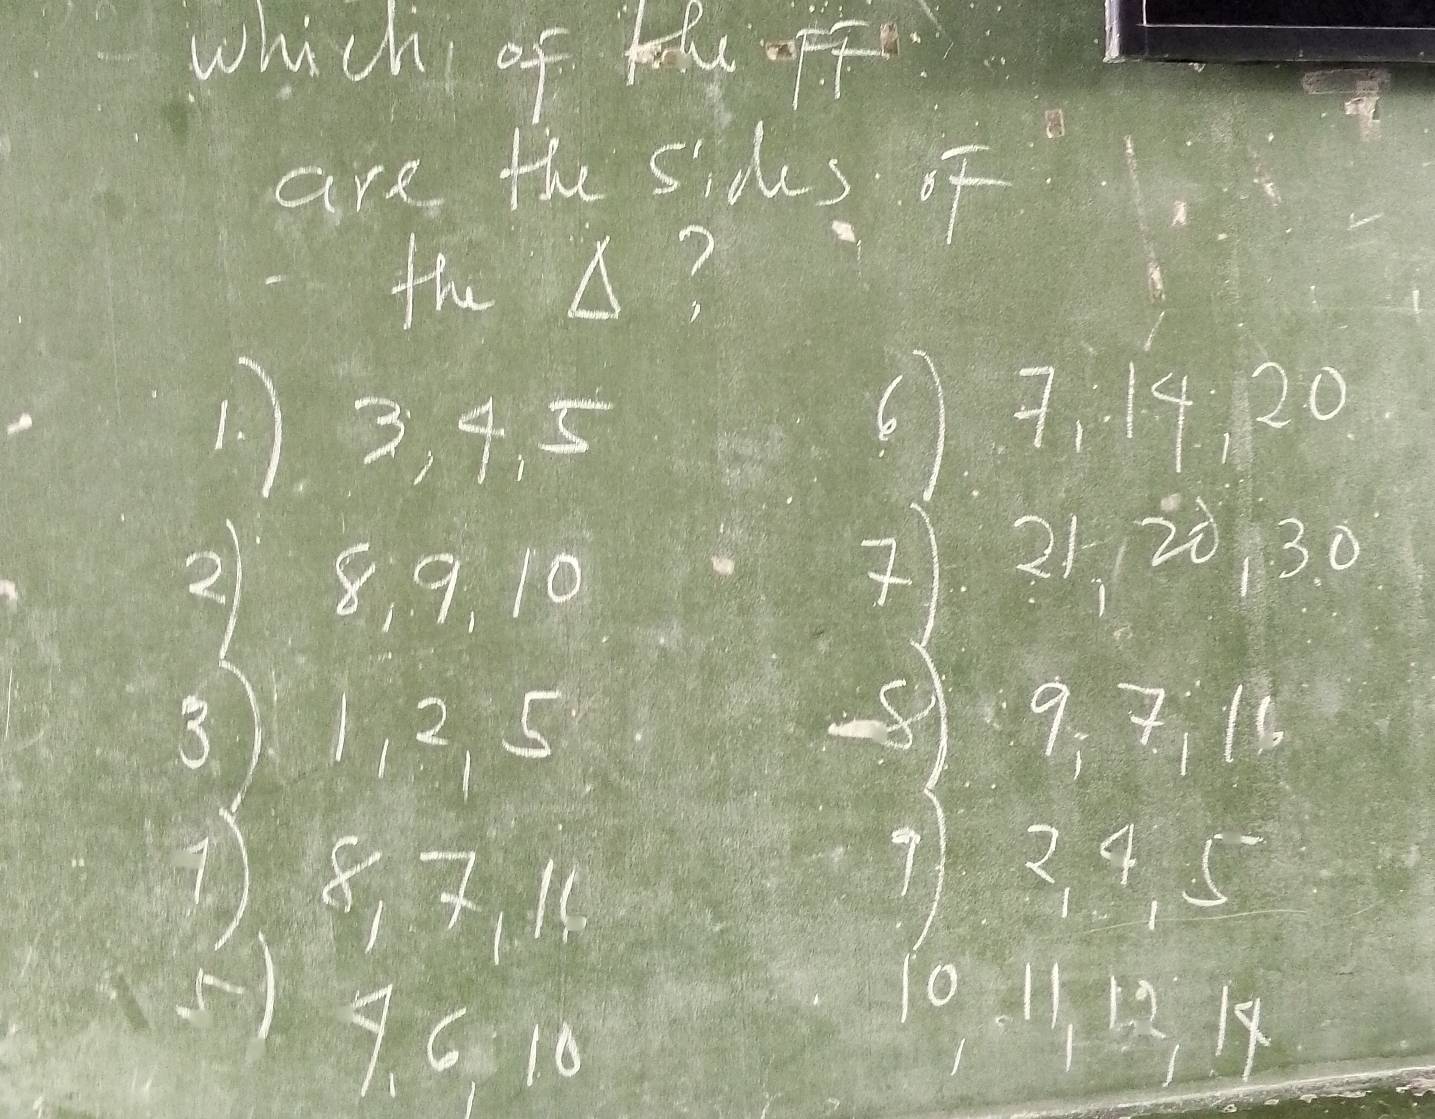 which of the ff
are the sides of
the Δ?
1.) 3, 4, 5
2) 8, 9, 10
3) 1, 2, 5
4) 8, 7, 16
5) 4, 6, 10
6) 7, 14, 20
7) 21, 20, 30
8) 9, 7, 16
9) 2, 4, 5
10, 11, 12, 14